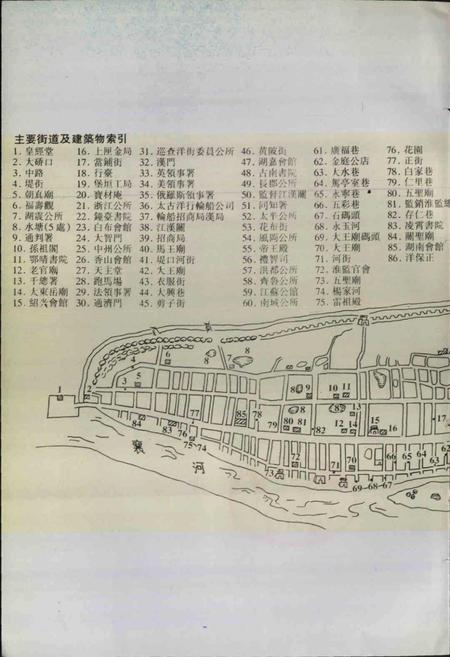 主要街道及建築物索引
1. 皇經堂 16. 上厘金局 31. 巡查洋街委員公所 46. 黄陂街 61. 廣福巷 76. 花園
2. 大硚口 17. 當鋪街 32. 漢門 47. 湖嘉會館 62. 金庭公店 77. 正街
3. 中路 18. 行臺 33. 英領事署 48. 古南書院 63. 大水巷 78. 白家巷
4. 堤街 19. 堡垣工局 34. 美領事署 49. 長郡公所 64. 萬亭室巷 79. 仁里巷
5. 朝真廟 20. 寶材庵 35. 俄羅斯領事署 50. 監督江漢關 65. 永寧巷 80. 五聖廟
6. 福壽觀 21. 浙江公所 36. 太古洋行輪船公司 51. 同知署 66. 五彩巷 81. 監銷淮監總
7. 湖震公所 22. 鐘臺書院 37. 輪船招商局漢局 52. 太平公所 67. 石碼頭 82. 存仁巷
8. 水塘(5處) 23. 白布會館 38. 江漢關 53. 花布街 68. 永玉河 83. 凌霄書院
9. 通判署 24. 大智門 39. 招商局 54. 風陶公所 69. 大王廟碼頭 84. 關聖廟
10. 孫祖閣 25. 中州公所 40. 馬王廟 55. 帝王殿 70. 大王廟 85. 湖南會館
11. 鄂晴書院 26. 香山會館 41. 堤口河街 56. 禮智司 71. 河街 86. 洋保正
12. 老官廟 27. 天主堂 42. 大王廟 57. 洪都公所 72. 淮監官會
13. 千總署 28. 跑馬場 43. 衣服街 58. 齊魯公所 73. 五聖廟
14. 大東岳廟 29. 法領事署 44. 大興巷 59. 江蘇公館 74. 楊家河
15. 紹興會館 30. 通濟門 45. 剪子街 60. 南城公所 75. 雷祖殿
襄
河
1
2
3
4
5
6
7
8
8
8
9
10
11
12
13
14
15
16
17
62
63
64
65
66
67
68
69
70
71
72
73
74
75
76
77
78
79
80
81
82
83
84
85